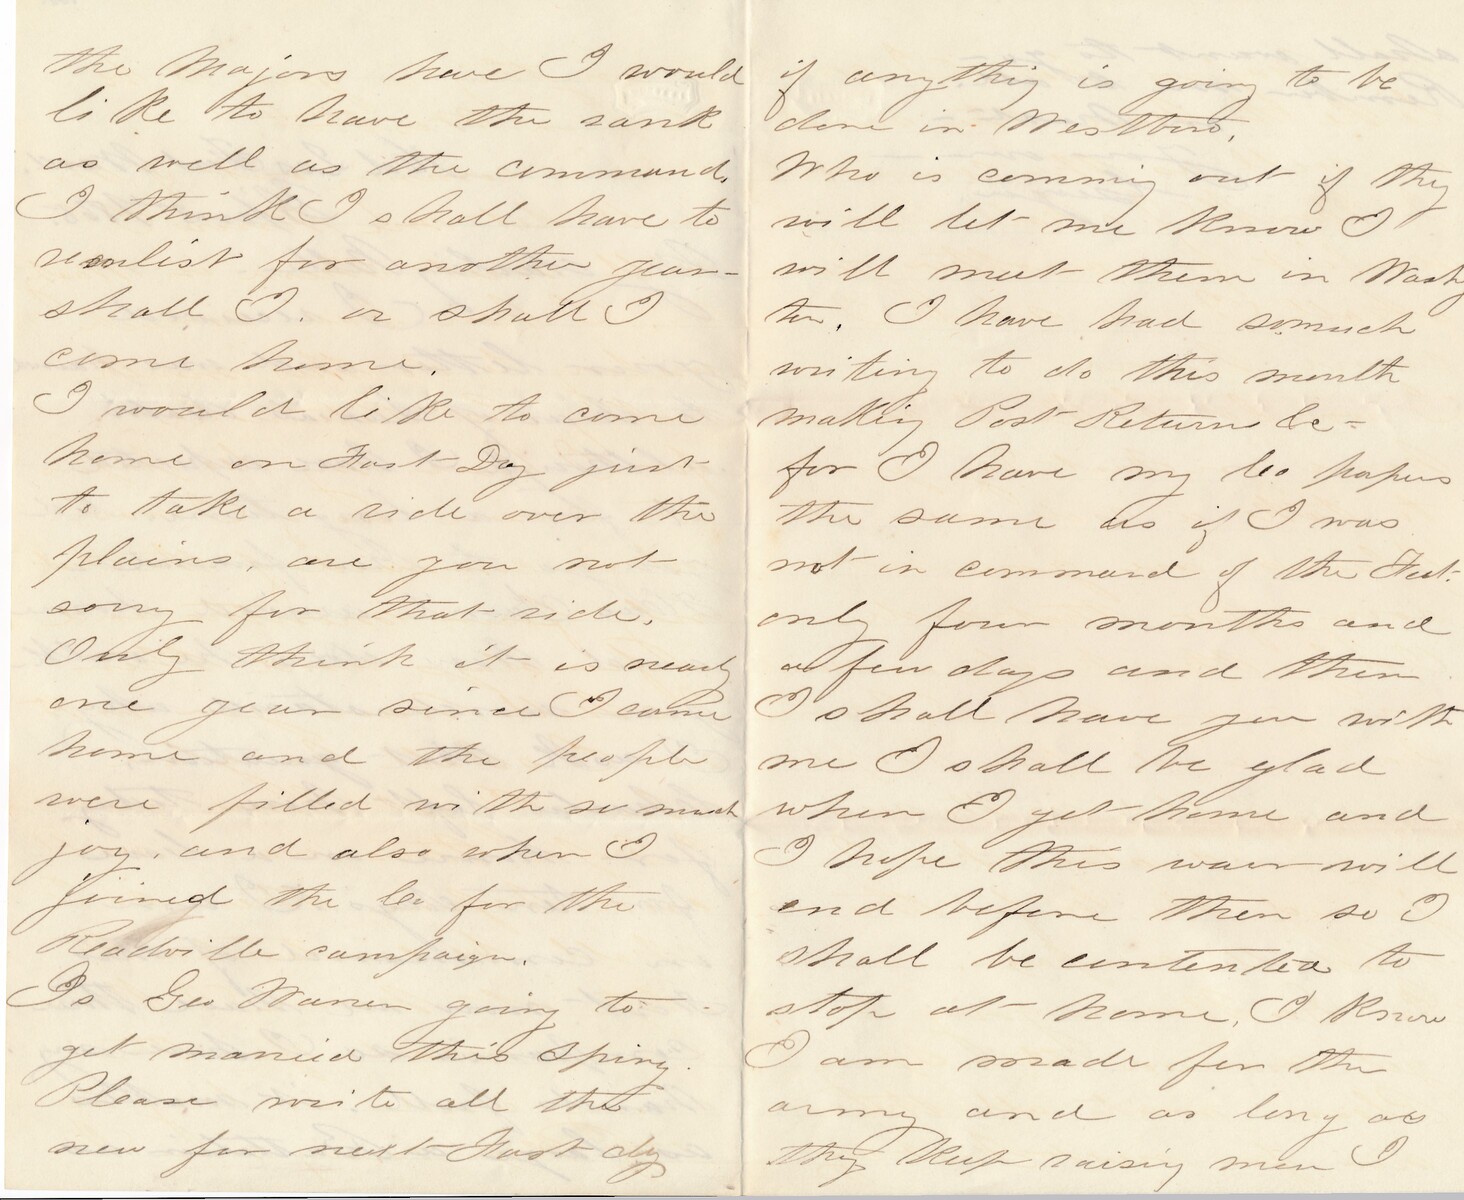 the Majors have I would
like to have the rank
as well as the command.
I think I shall have to
reenlist for another year-
shall I. or shall I
come home.
I would like to come
home on Fast Day just
to take a ride over the
plains, are you not
sorry for that ride.
Only think it is nearly
one year since I came
home and the people
were filled with so much
joy. and also when I
joined the Co for the
Readville campaign.
Is Geo Warren going to
get married this Spring.
Please write all the
new for next Fast day
if anything is going to be
done in Westboro.
Who is comming out if they
will let me know I
will meet them in Washg
ton. I have had somuch
writing to do this month
making Post Returns &c-
for I have my Co papers
the same as if I was
not in command of the Fort.
only four months and
a few days and then
I shall have you with
me I shall be glad
when I get home and
I hope this waer will
end before then so I
shall be contented to
stop at home, I know
I am made for the
army and as long as
they keep raising men I